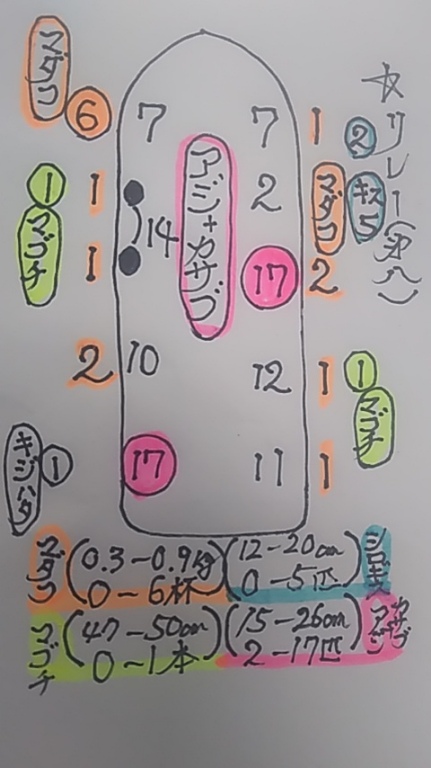 ☆リレー(第八)
マダコ
6
7
7
1
②
キス
5
マダコ
2
アジ+カサゴ
①
マゴチ
1
1
14
17
2
2
10
12
1
①
マゴチ
キジハタ
①
17
11
1
マダコ (0.3-0.9kg 0-6杯)
(12-20cm 0-5匹) シロギス
マゴチ (47-50cm 0-1本)
(15-26cm 2-17匹) カサゴ アジ